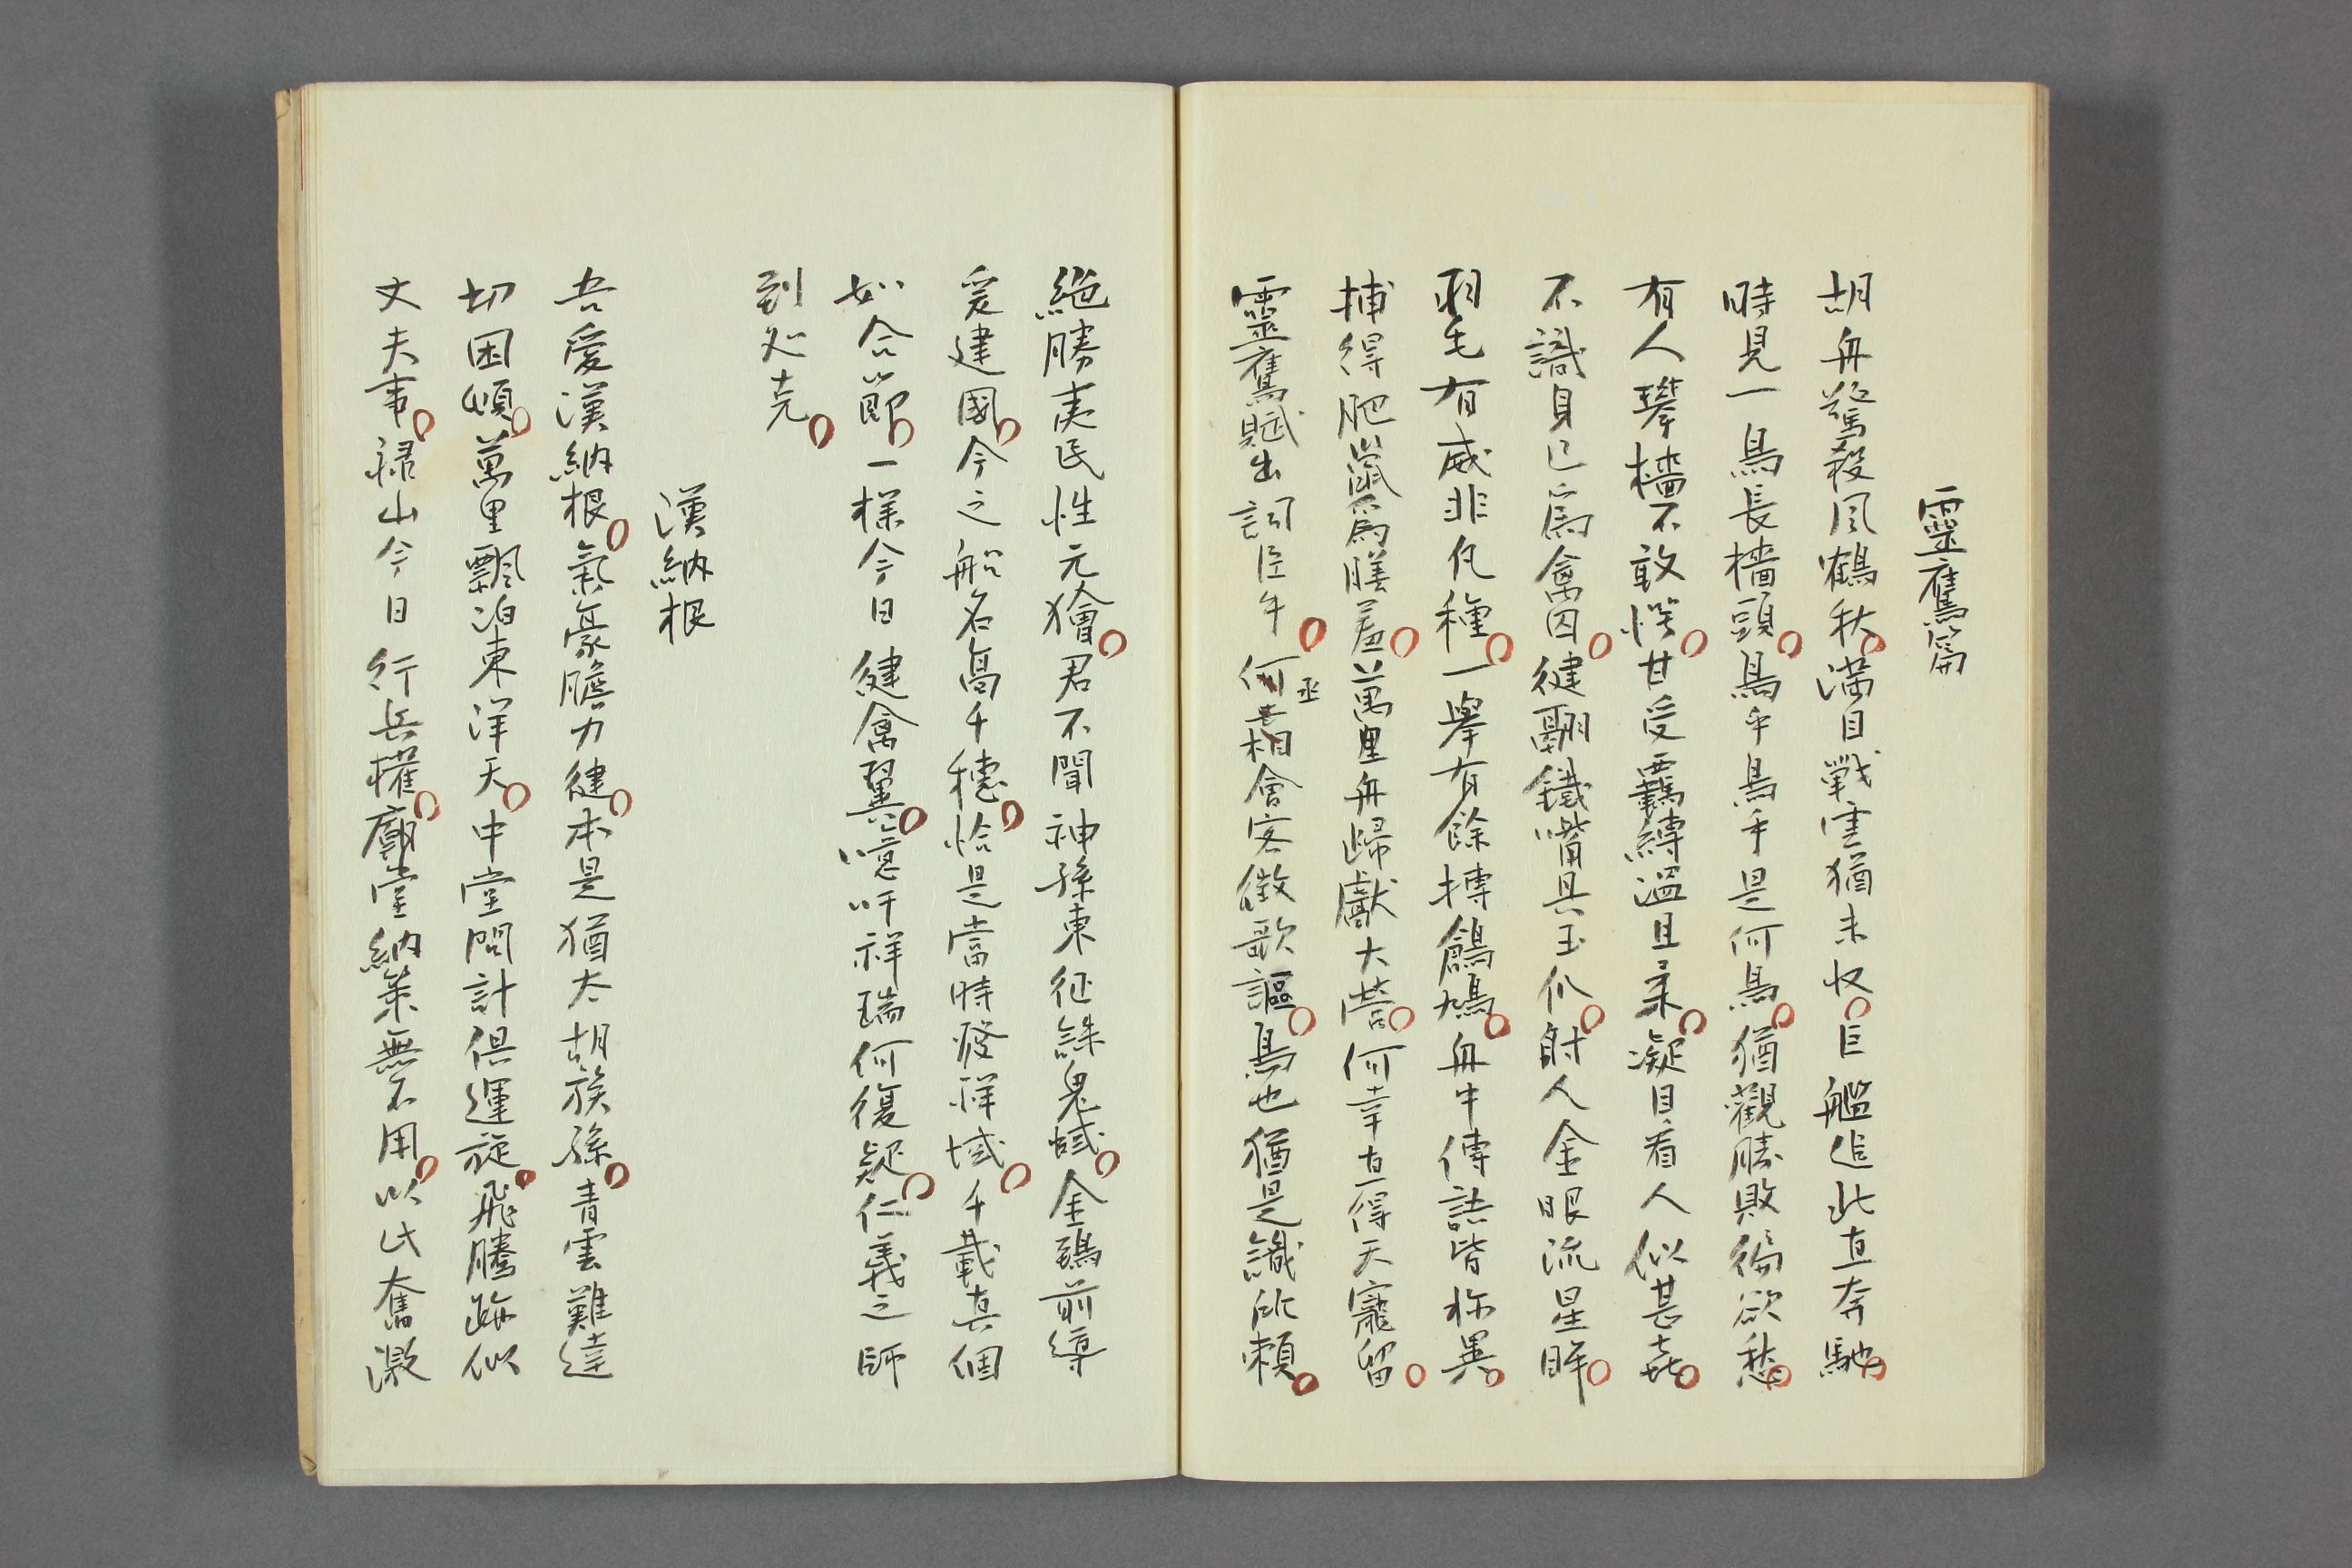 靈鷹篇
胡舟驚殺風鶴秋滿目戰雲猶未收巨艦進此直奔馳
時見一鳥長檣頭鳥乎鳥乎是何鳥猶觀勝敗徜欲愁
有人攀檣不敢愕甘受羈縛溫且柔凝目看人似甚㐂
不識身已為禽囚健翮鐵嘴具玉爪射人金眼流星眸
羽毛有威非凡種一舉有餘搏鴿鳩舟中傳誌皆称異
捕得肥鼠為膳羞萬里舟歸獻大營何幸直得天寵留
靈鷹賦出詞臣年何丞相會客徵歌謳鳥也猶是識所賴
絕勝夷民性元獪君不聞神孫東征誅鬼蜮金鵄前導
爰建國今之船名高千穗恰是當時發祥域千載真個
如合節一様今日健禽翼噫吁祥瑞何復疑仁義之師
到処克
漢納根
吾愛漢納根氣豪膽力健本是猶太胡族孫青雲難達
切困頓萬里飄泊東洋天中堂問計俱運旋飛騰跡似
丈夫事祿山今日行兵權廟堂納策無不用以此奮激